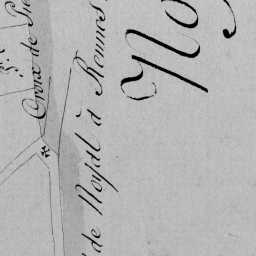 Croix de
de Noyal à Rennes
No